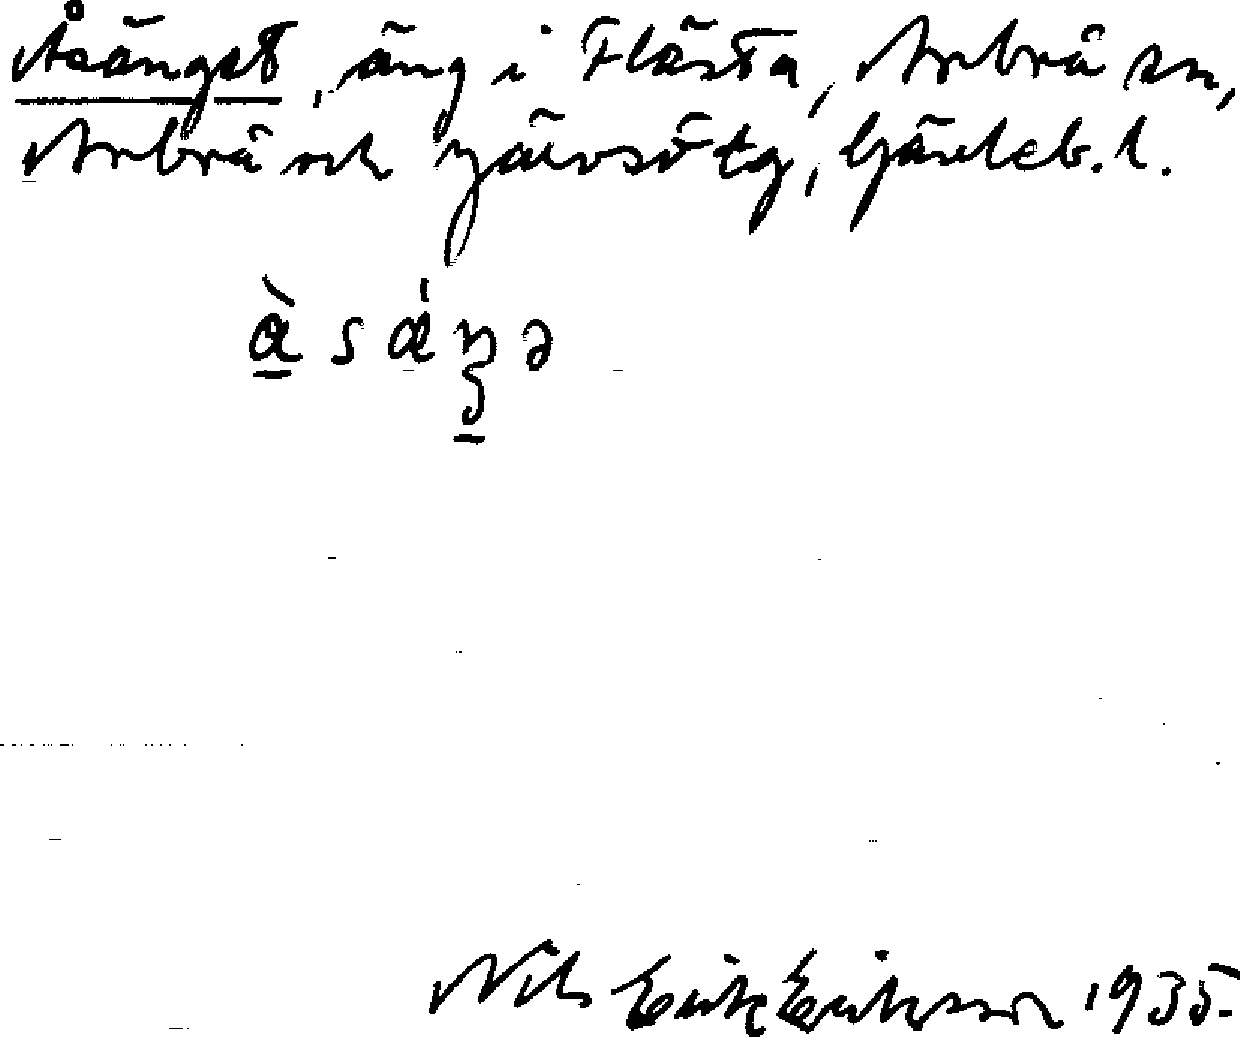 Åsängst, äng i Flästa, Arbrå sn,
Arbrå och Järvsö tg, Gävleb. l.
Nils Erik Eriksson 1935.